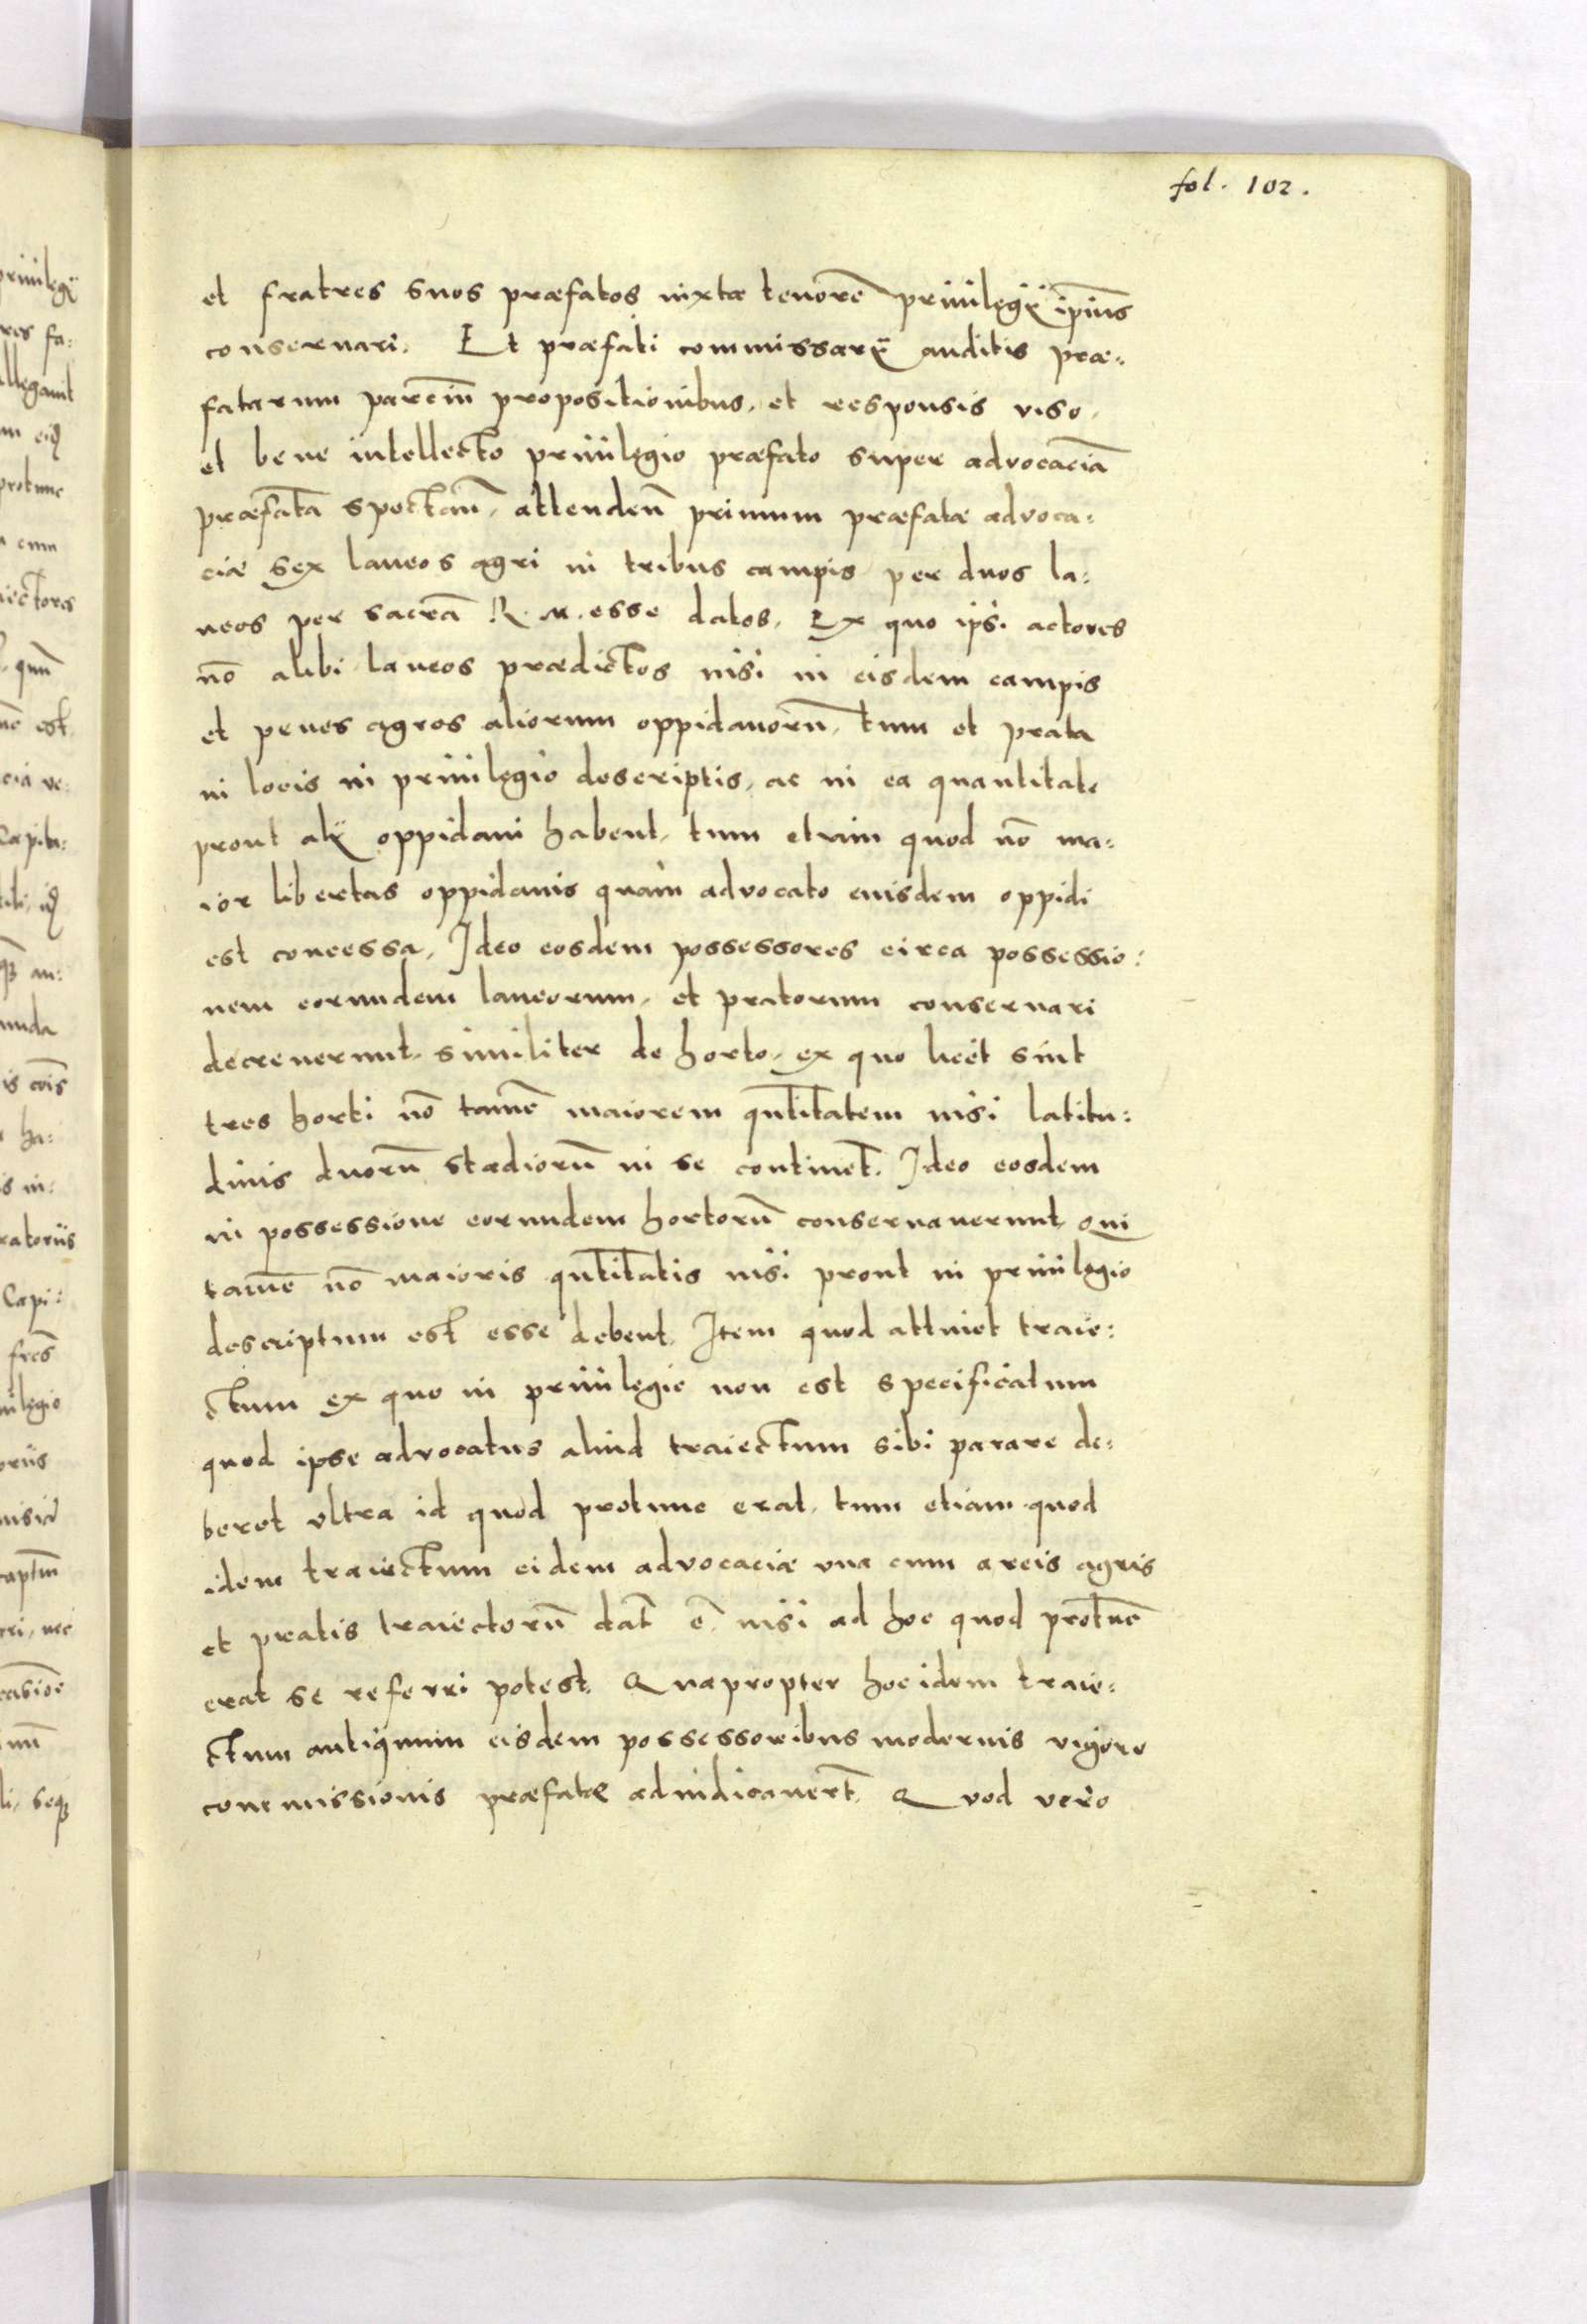 fol. 102.
et fratres suos præfatos iuxta tenorē priuilegÿ ip̄ius
conseruari. Et præfati commissarÿ auditis præ:
fatarum parciū propositionibus, et responsis viso,
et bene intellecto priuilegio præfato super advocaciā
præfatā spectan̄, attenden̄ primum præfatæ advoca:
ciæ sex laneos agri in tribus campis per duos la:
neos per sacrā R. M. esse datos, Ex quo ipsi actores
nō alibi laneos prædictos nisi in eisdem campis
et penes agros aliorum oppidanorū, tum et prata
in locis in priuilegio descriptis, ac in ea quantitate
prout alÿ oppidani habent, tum etiam quod nō ma:
ior libertas oppidanis quam advocato eiusdem oppidi
est concessa, Ideo eosdem possessores circa possessio:
nem eorundem laneorum, et pratorum conseruari
decreuerunt, similiter de horto, ex quo licet sint
tres horti nō tamē maiorem qn̄titatem nisi latitu:
dinis duorū stadiorū in se continet. Ideo eosdem
in possessione eorundem hortorū conseruauerunt, qui
tamē nō maioris qn̄titatis nisi prout in priuilegio
descriptum est esse debent, Item quod attinet traie:
ctum ex quo in priuilegio non est specificatum
quod ipse advocatus aliud traiectum sibi parare de:
beret vltra id quod protunc erat, tum etiam quod
idem traiectum eidem advocaciæ vna cum areis agris
et pratis traiectorū dat̄ ē, nisi ad hoc quod protunc̄
erat se referri potest, Quapropter hoc idem traie:
ctum antiquum eisdem possessoribus modernis vigore
commissionis præfatæ adiudicauert̄, Quod vero